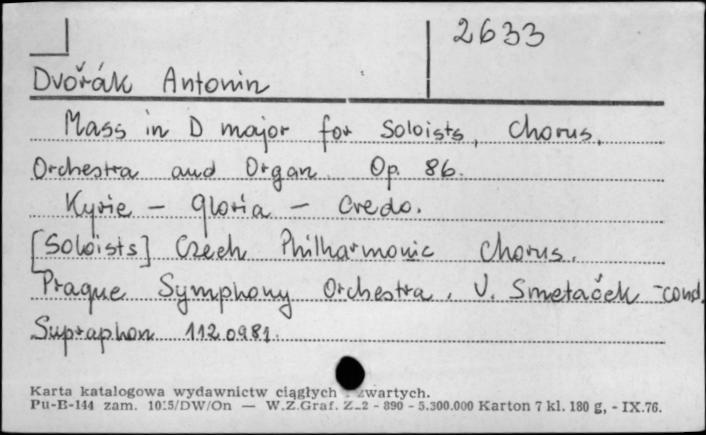 2633
Dvořák Antonin
Mass in D major for Soloists, Chorus,
Orchestra and Organ. Op. 86.
Kyrie – Gloria – Credo.
[Soloists] Czech Philharmonic Chorus.
Prague Symphony Orchestra. V. Smetaček - cond.
Supraphon 112.0981.
Karta katalogowa wydawnictw ciągłych zwartych.
Pu-B-144 zam. 1015/DW/On — W.Z.Graf. Z-2 - 890 - 5.300.000 Karton 7 kl. 180 g, - IX.76.